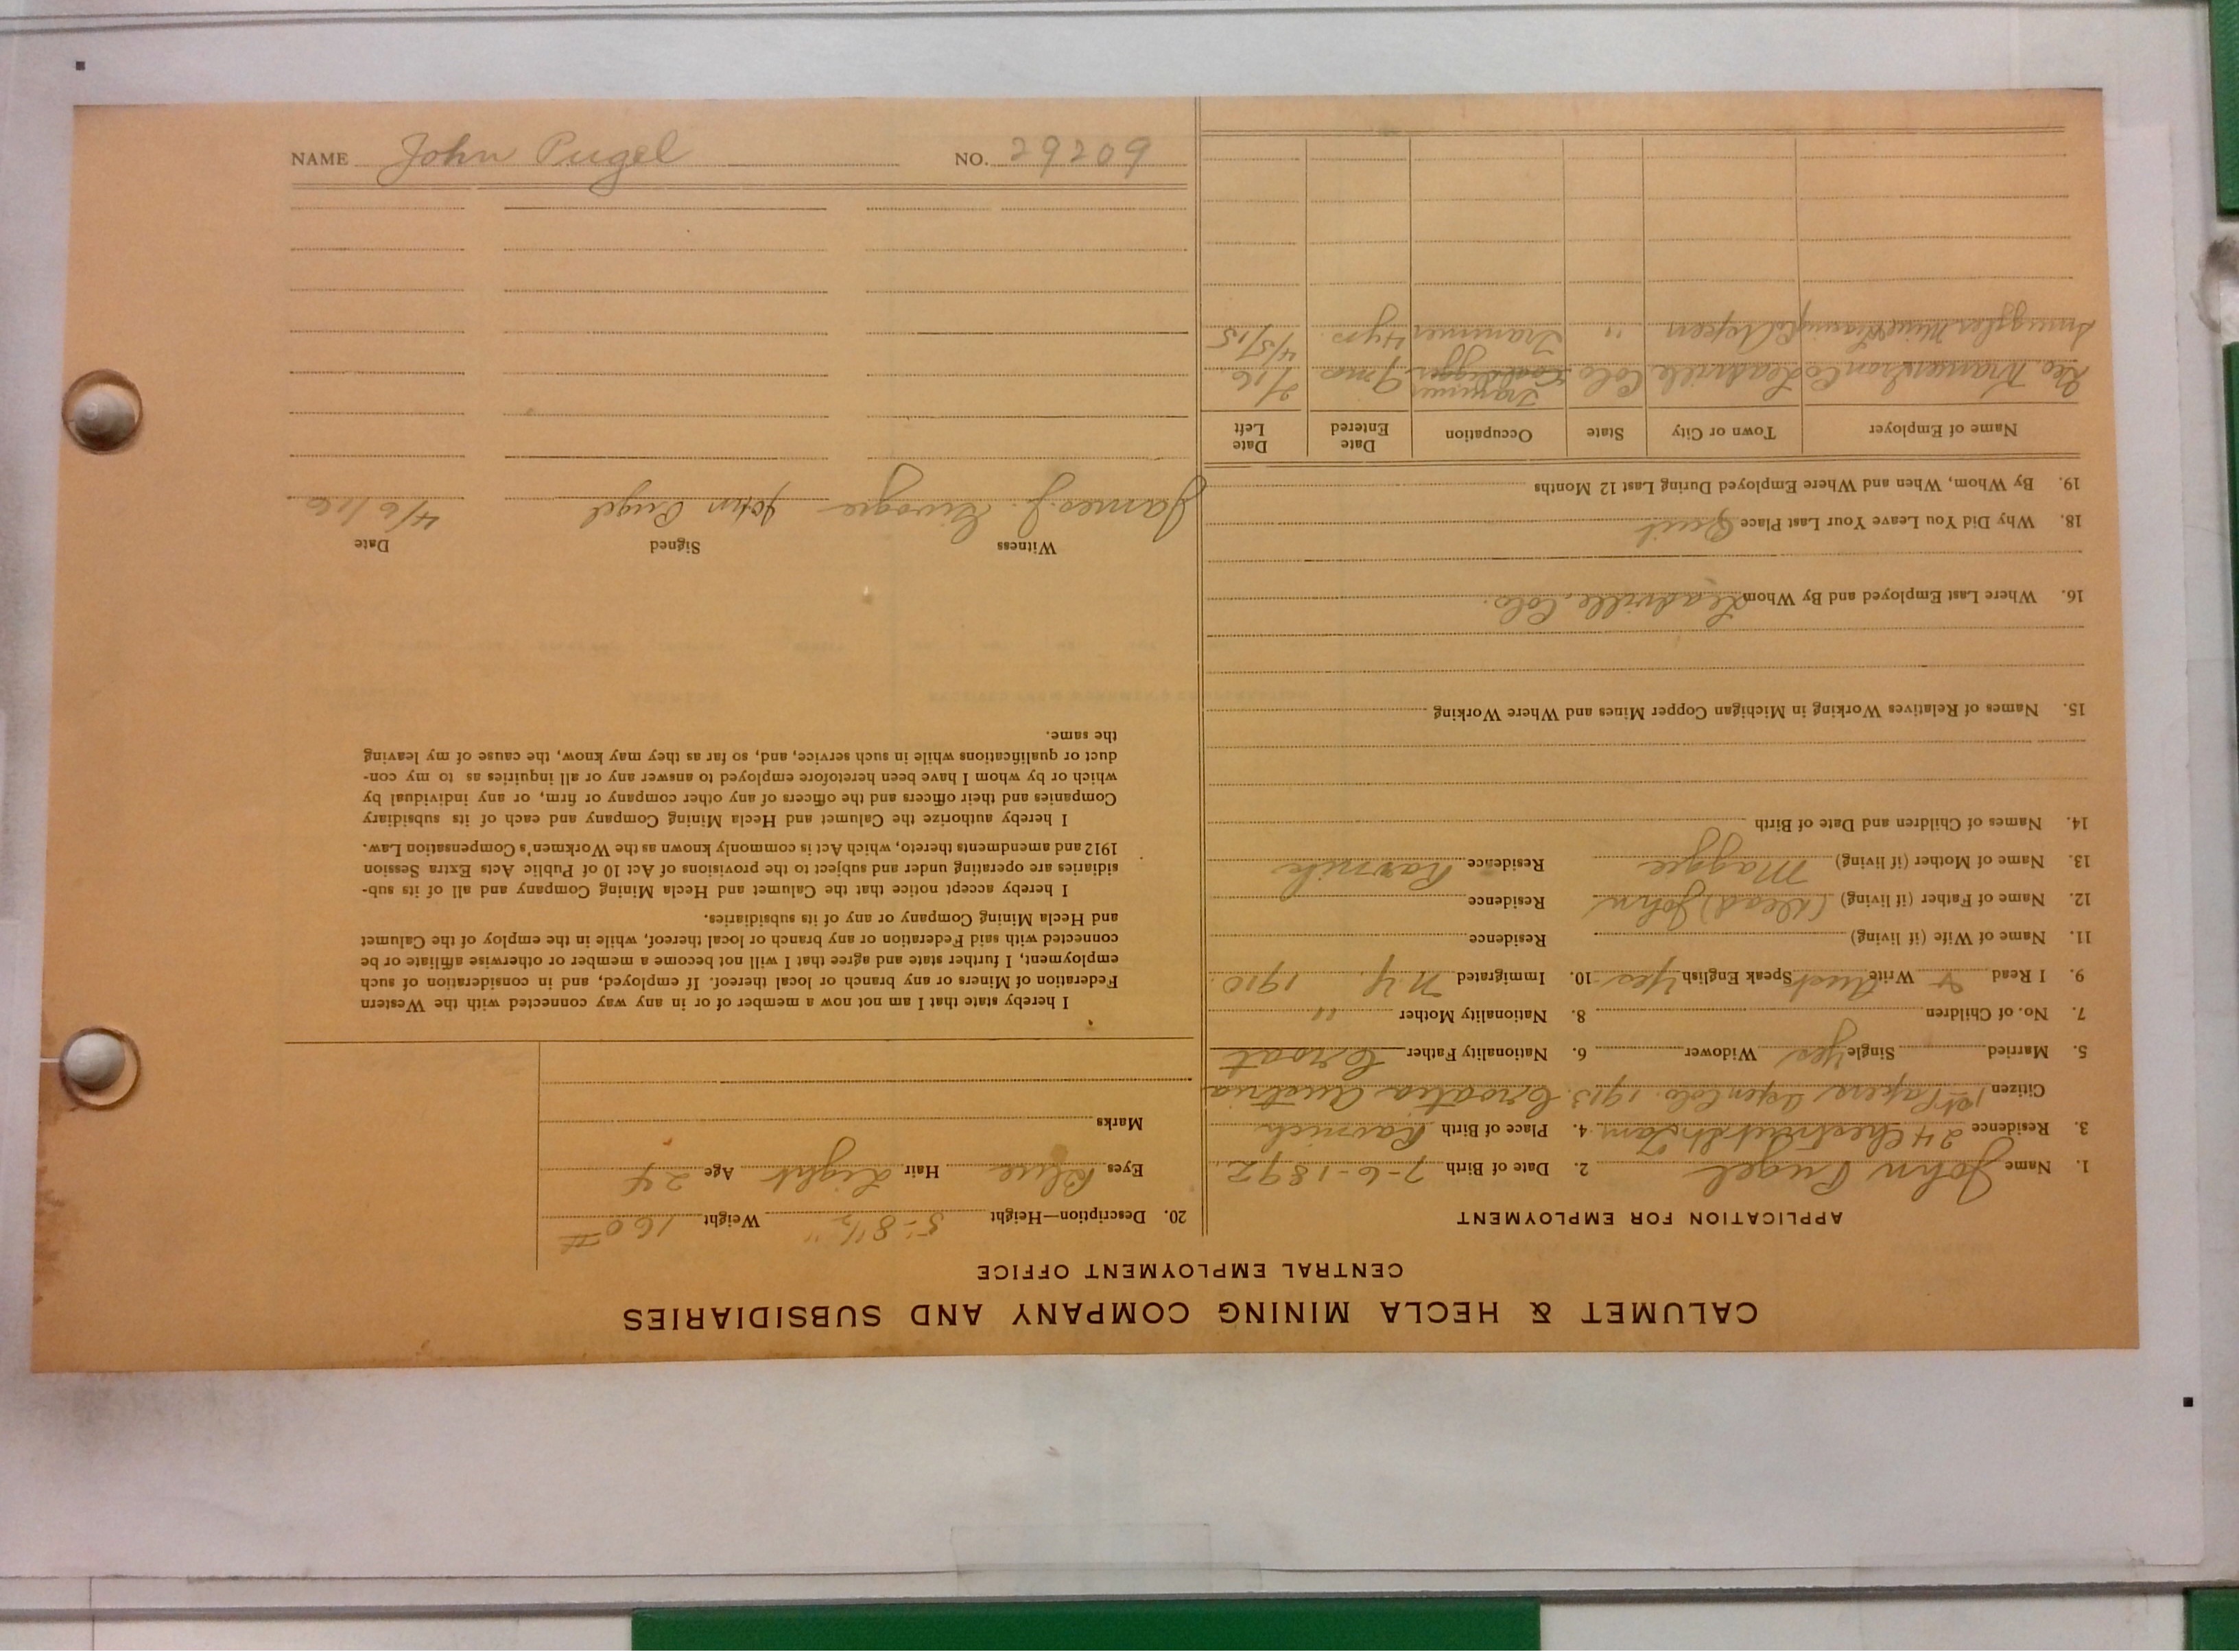 CALUMET & HECLA MINING COMPANY AND SUBSIDIARIES
CENTRAL EMPLOYMENT OFFICE
APPLICATION FOR EMPLOYMENT
1. Name John Pugel 2. Date of Birth 7-6-1892
3. Residence 24 Chestnut St. 4. Place of Birth Ravnich
Citizen 1st Papers Aspen Colo. 1913. Croatia Austria
5. Married Single Yes Widower 6. Nationality Father Croat
7. No. of Children 8. Nationality Mother "
9. I Read & Write Aust Speak English Yes 10. Immigrated N.Y. 1910.
11. Name of Wife (if living) Residence
12. Name of Father (if living) (Dead) John Residence
13. Name of Mother (if living) Maggie Residence
14. Names of Children and Date of Birth
15. Names of Relatives Working in Michigan Copper Mines and Where Working
16. Where Last Employed and By Whom Leadville, Colo.
18. Why Did You Leave Your Last Place Quit
19. By Whom, When and Where Employed During Last 12 Months
Name of Employer Town or City State Occupation Date Entered Date Left
Leadville Colo Trammer 9 mos 3/16
Smuggler Aspen " Trammer 4 yrs 4/5/15
20. Description—Height 5'-8½" Weight 160#
Eyes Blue Hair Light Age 24
Marks
I hereby state that I am not now a member of or in any way connected with the Western
Federation of Miners or any branch or local thereof. If employed, and in consideration of such
employment, I further state and agree that I will not become a member or otherwise affiliate or be
connected with said Federation or any branch or local thereof, while in the employ of the Calumet
and Hecla Mining Company or any of its subsidiaries.
I hereby accept notice that the Calumet and Hecla Mining Company and all of its sub-
sidiaries are operating under and subject to the provisions of Act 10 of Public Acts Extra Session
1912 and amendments thereto, which Act is commonly known as the Workmen's Compensation Law.
I hereby authorize the Calumet and Hecla Mining Company and each of its subsidiary
Companies and their officers and the officers of any other company or firm, or any individual by
which or by whom I have been heretofore employed to answer any or all inquiries as to my con-
duct or qualifications while in such service, and, so far as they may know, the cause of my leaving
the same.
Witness Signed Date
James J. John Pugel 4/6/16
NAME John Pugel NO. 29209